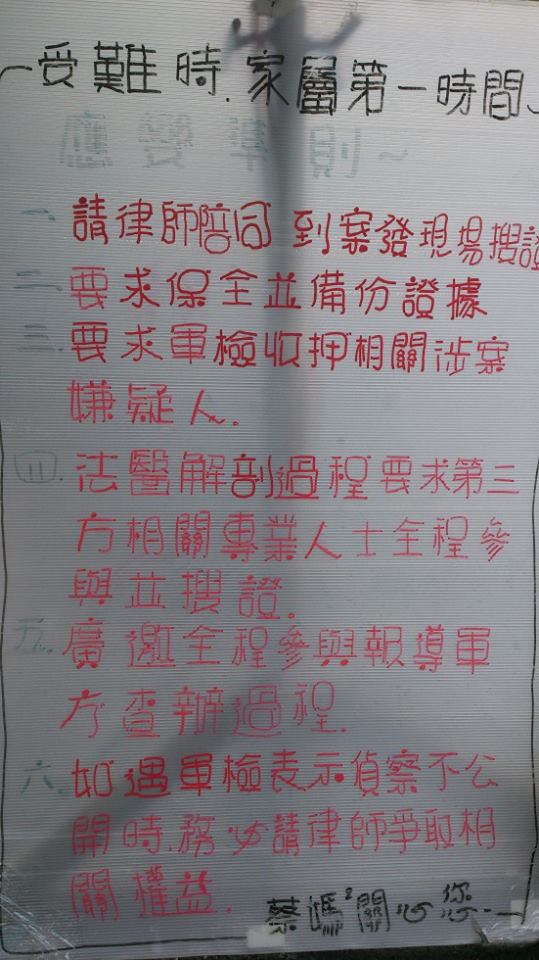 受難時.家屬第一時間
應變準則~
一、請律師陪同 到案發現場搜證
二、要求保全並備份證據
三、要求軍檢收押相關涉案
嫌疑人.
四.法醫解剖過程要求第三
方相關專業人士全程參
與並搜證.
五.廣邀全程參與報導軍
方查辦過程.
六.如遇軍檢表示偵察不公
開時.務必請律師爭取相
關權益.
蔡媽²關心您